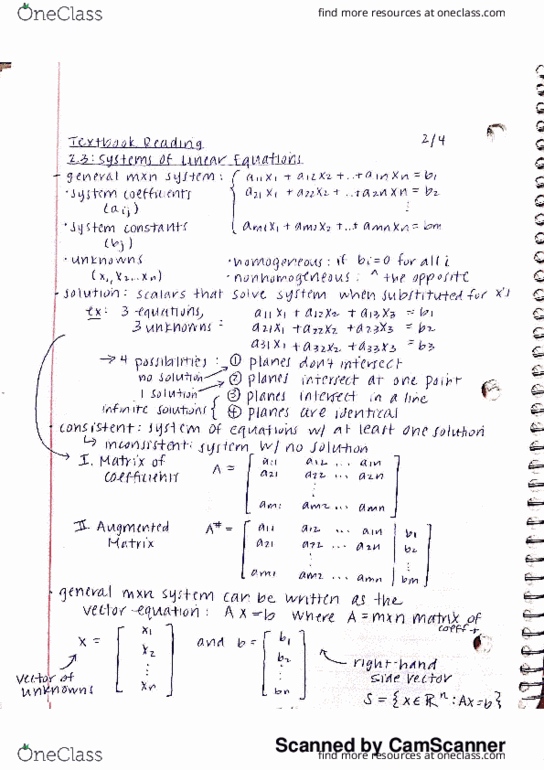 OneClass
find more resources at oneclass.com
Textbook Reading
2/4
2.3: Systems of Linear Equations
- general mxn system: { a11x1 + a12x2 + ..+ a1nxn = b1
· system coefficients a21x1 + a22x2 + ..+ a2nxn = b2
(aij) ⋮
· system constants am1x1 + am2x2 + ..+ amnxn = bm
(bj)
· unknowns · homogeneous: if bi=0 for all i
(x1,x2...xn) · nonhomogeneous: ^ the opposite
- solution: scalars that solve system when substituted for x's
ex: 3 equations, a11x1 + a12x2 + a13x3 = b1
3 unknowns: a21x1 + a22x2 + a23x3 = b2
a31x1 + a32x2 + a33x3 = b3
→ 4 possibilities: ① planes don't intersect
no solution ② planes intersect at one point
1 solution ③ planes intersect in a line
infinite solutions { ④ planes are identical
- consistent: system of equations w/ at least one solution
↳ inconsistent: system w/ no solution
I. Matrix of A = [ a11 a12 ... a1n ]
coefficients a21 a22 ... a2n
⋮
am1 am2 ... amn
II. Augmented A# = [ a11 a12 ... a1n | b1 ]
Matrix a21 a22 ... a2n | b2
⋮ ⋮
am1 am2 ... amn | bm
- general mxn system can be written as the
vector equation: Ax=b where A=mxn matrix of
coeff
x = [ x1 x2 ⋮ xn ] and b = [ b1 b2 ⋮ bn ]
vector of unknowns
right-hand side vector
S = {x∈ℝⁿ: Ax=b}
Scanned by CamScanner
OneClass
find more resources at oneclass.com